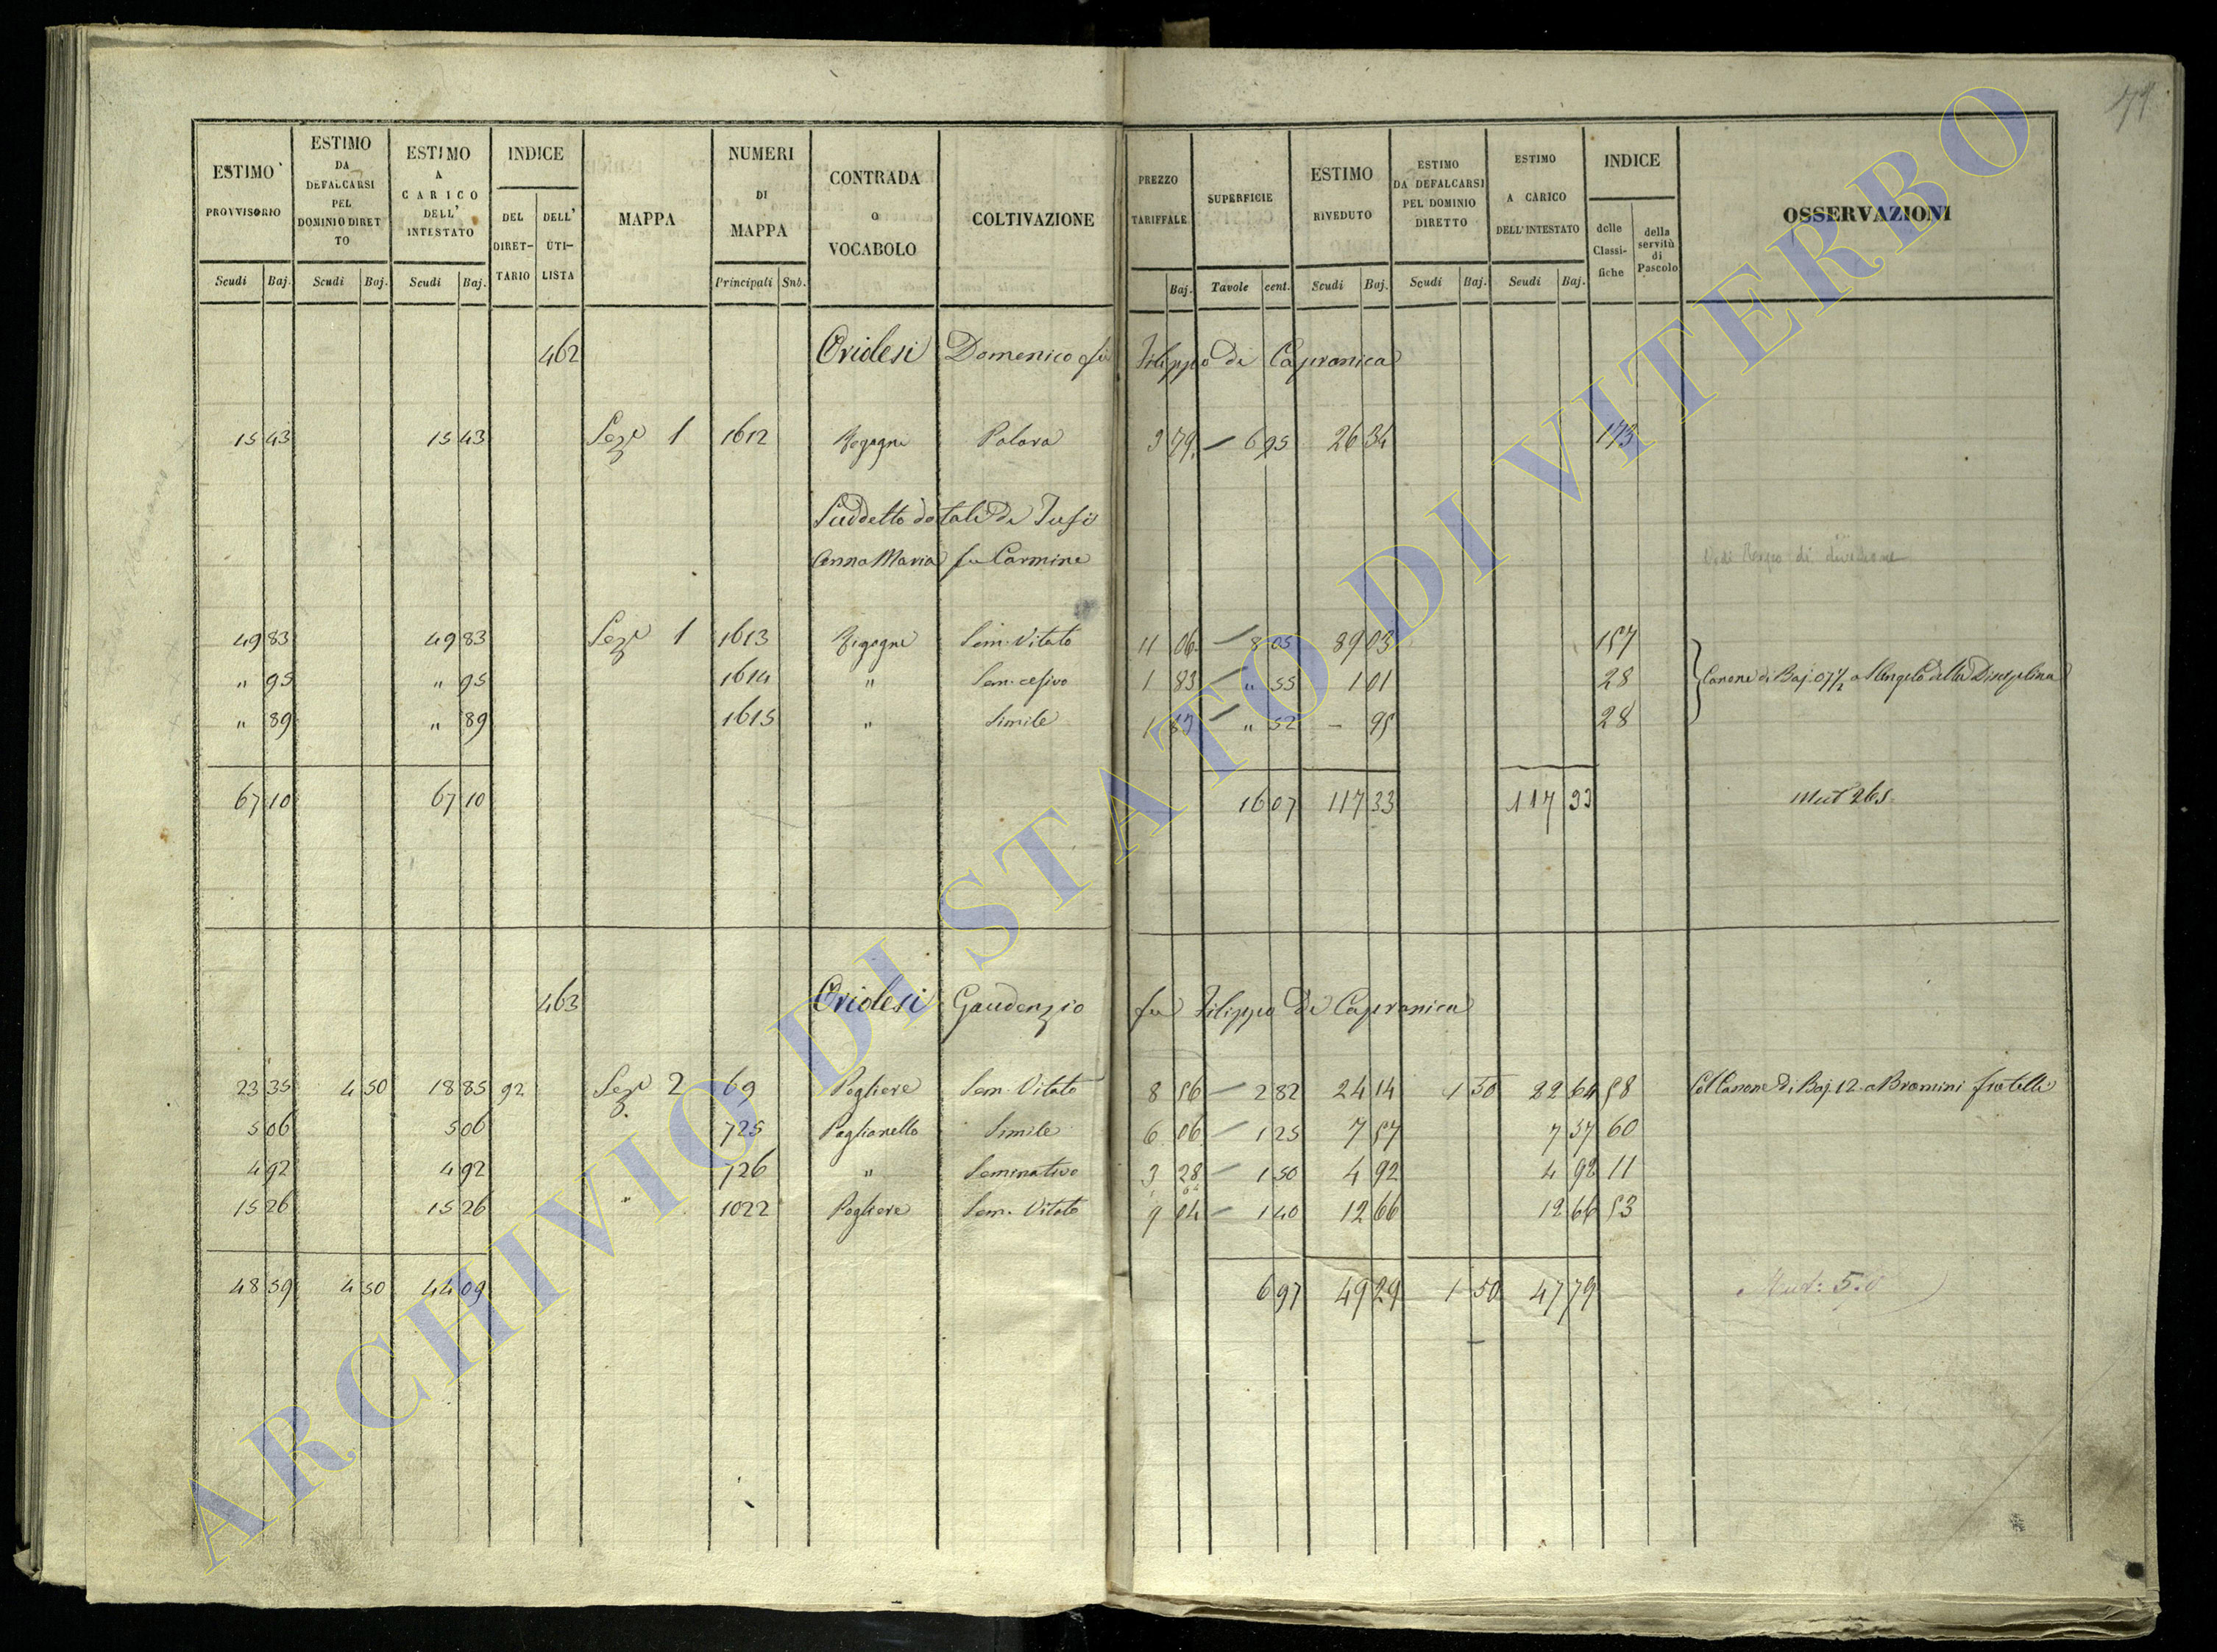 79
ESTIMO PROVVISORIO Scudi Baj.
ESTIMO DA DEFALCARSI PEL DOMINIO DIRETTO Scudi Baj.
ESTIMO A CARICO DELL' INTESTATO Scudi Baj.
INDICE DEL DIRETTARIO DELL' UTILISTA
MAPPA
NUMERI DI MAPPA Principali Sub.
CONTRADA O VOCABOLO
COLTIVAZIONE
PREZZO TARIFFALE Baj.
SUPERFICIE Tavole cent.
ESTIMO RIVEDUTO Scudi Baj.
ESTIMO DA DEFALCARSI PEL DOMINIO DIRETTO Scudi Baj.
ESTIMO A CARICO DELL' INTESTATO Scudi Baj.
INDICE delle Classifiche della servitù di Pascolo
OSSERVAZIONI
462 Oriolesi Domenico fu Filippo di Capranica
15 43 15 43 Seze 1 1612 Rigagni Palara 3 79 — 6 95 26 34 173
Suddetto dotali di Tufi
Anna Maria fu Carmine
di divisione
49 83 49 83 Seze 1 1613 Rigagni Sem. Vitato 11 06 — 8 05 89 03 157
" 95 " 95 1614 " Sem. cesivo 1 83 — " 55 1 01 28 Canone di Baj. 07½ a S Angelo della Disciplina
" 89 " 89 1615 " Simile 1 83 — " 52 — 95 28
67 10 67 10 16 07 117 33 117 33 Mut 265
463 Oriolesi Gaudenzio fu Filippo di Capranica
23 35 4 50 18 85 92 Seze 2 69 Pogliere Sem. Vitato 8 56 — 2 82 24 14 1 50 22 64 58 Col Canone di Baj. 12 a Bramini fratelli
5 06 5 06 725 Paglianello Simile 6 06 — 1 25 7 57 7 57 60
4 92 4 92 726 " Seminativo 3 28 — 1 50 4 92 4 92 11
15 26 15 26 " 1022 Pogliere Sem. Vitato 9 04 — 1 40 12 66 12 66 53
48 59 4 50 44 09 6 97 49 29 1 50 47 79 Mut:
ARCHIVIO DI STATO DI VITERBO